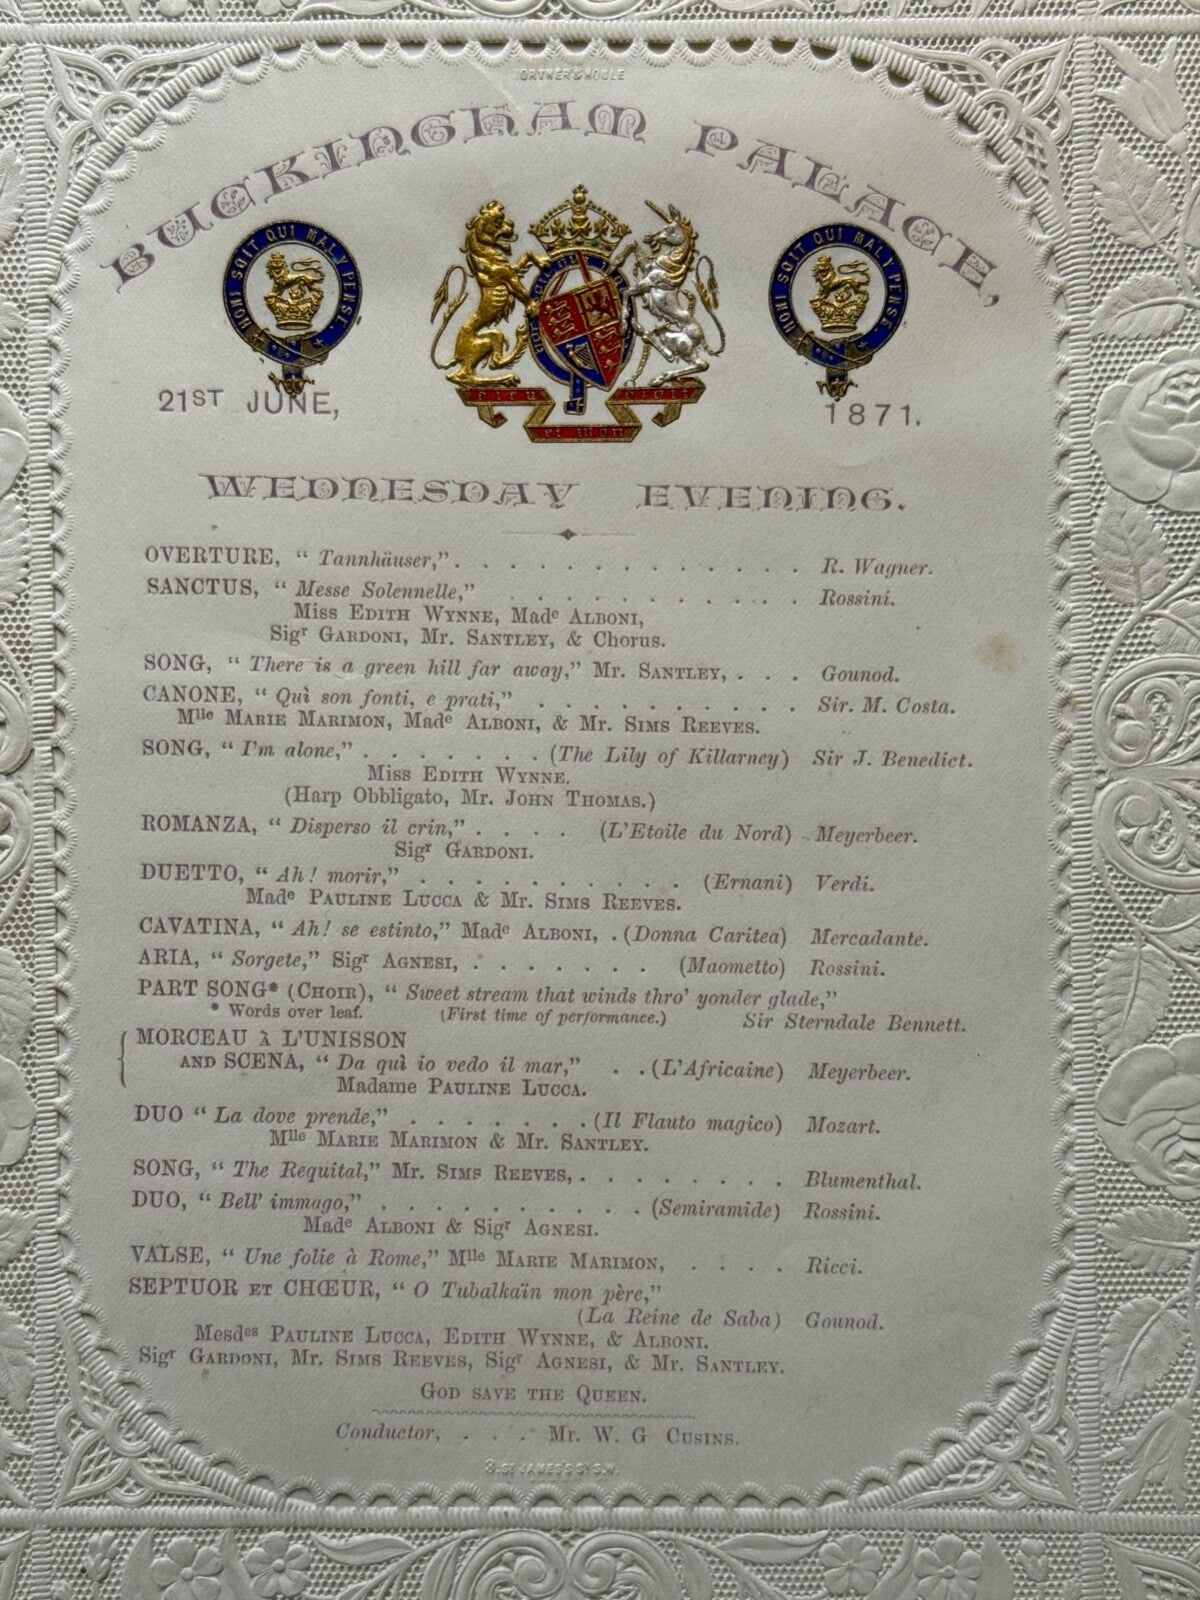 ORTNER & HOULE
BUCKINGHAM PALACE,
HONI SOIT QUI MAL Y PENSE.
HONI SOIT QUI MAL Y PENSE.
21ST JUNE, 1871.
WEDNESDAY EVENING.
OVERTURE, “ Tannhäuser,” . . . . . . . . . . . . . R. Wagner.
SANCTUS, “ Messe Solennelle,” . . . . . . . . . . Rossini.
Miss EDITH WYNNE, Made ALBONI,
Sigr GARDONI, Mr. SANTLEY, & Chorus.
SONG, “ There is a green hill far away,” Mr. SANTLEY, . . . Gounod.
CANONE, “ Quì son fonti, e prati,” . . . . . . . . . . Sir. M. Costa.
Mlle MARIE MARIMON, Made ALBONI, & Mr. SIMS REEVES.
SONG, “ I'm alone,” . . . . . . . (The Lily of Killarney) Sir J. Benedict.
Miss EDITH WYNNE.
(Harp Obbligato, Mr. JOHN THOMAS.)
ROMANZA, “ Disperso il crin,” . . . . (L'Etoile du Nord) Meyerbeer.
Sigr GARDONI.
DUETTO, “ Ah! morir,” . . . . . . . . . . (Ernani) Verdi.
Made PAULINE LUCCA & Mr. SIMS REEVES.
CAVATINA, “ Ah! se estinto,” Made ALBONI, . (Donna Caritea) Mercadante.
ARIA, “ Sorgete,” Sigr AGNESI, . . . . . . . (Maometto) Rossini.
PART SONG* (CHOIR), “ Sweet stream that winds thro' yonder glade,”
* Words over leaf. (First time of performance.) Sir Sterndale Bennett.
MORCEAU À L'UNISSON
AND SCENA, “ Da quì io vedo il mar,” . . (L'Africaine) Meyerbeer.
Madame PAULINE LUCCA.
DUO “ La dove prende,” . . . . . . . (Il Flauto magico) Mozart.
Mlle MARIE MARIMON & Mr. SANTLEY.
SONG, “ The Requital,” Mr. SIMS REEVES, . . . . . . . . Blumenthal.
DUO, “ Bell' immago,” . . . . . . . . . . (Semiramide) Rossini.
Made ALBONI & Sigr AGNESI.
VALSE, “ Une folie à Rome,” Mlle MARIE MARIMON, . . . . Ricci.
SEPTUOR ET CHŒUR, “ O Tubalkaïn mon père,”
(La Reine de Saba) Gounod.
Mesdes PAULINE LUCCA, EDITH WYNNE, & ALBONI.
Sigr GARDONI, Mr. SIMS REEVES, Sigr AGNESI, & Mr. SANTLEY.
GOD SAVE THE QUEEN.
Conductor, . . . Mr. W. G CUSINS.
3. ST JAMES'S ST S.W.